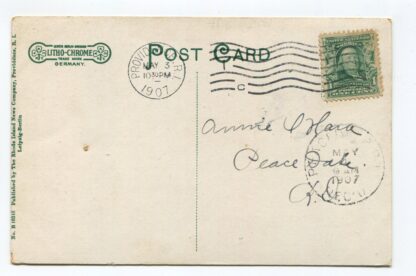 POST CARD
LITHO-CHROME
TRADE MARK
GERMANY.
PROVIDENCE, R.I.
MAY 3
10 30 PM
1907
C
Annie O'Hara
Peace Dale
R.I.
MAY
1907
REC'D.
No. B Published by The Rhode Island News Company, Providence, R. I.
Leipzig-Berlin